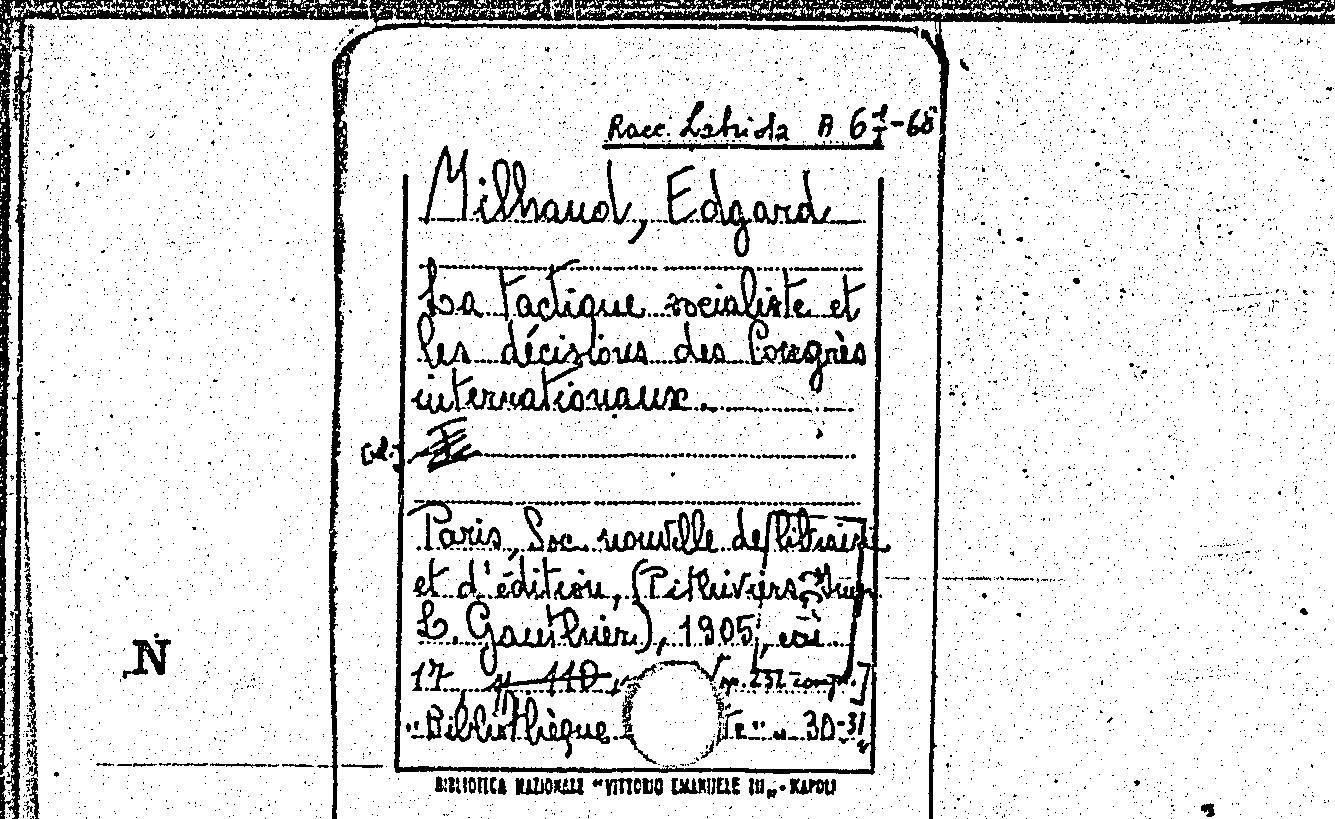 Racc. Labriola A 61-68
Milhaud, Edgard
La tactique socialiste et
les décisions des Congrès
internationaux.
Paris, Soc. nouvelle de librairie
et d'édition, (Pithiviers, Imp.
L. Gauthier), 1905,
17
"Bibliothèque 30-31
N
BIBLIOTECA NAZIONALE "VITTORIO EMANUELE III" - NAPOLI